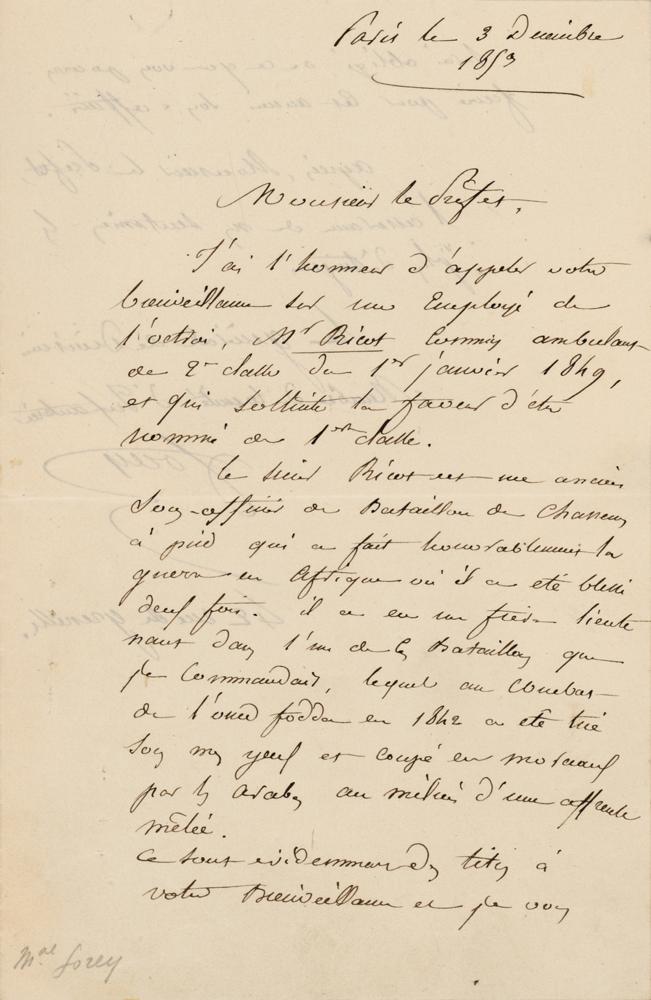 Paris le 3 Decembre
1853
Monsieur le Préfet,
J'ai l'honneur d'appeler votre
bienveillance sur un Employé de
l'octroi, Mr Ricot Commis ambulant
de 2e classe du 1er janvier 1849,
et qui sollicite la faveur d'être
nommé de 1ere classe.
Le sieur Ricot est un ancien
Sous-officier de Bataillon de Chasseurs
à pied qui a fait honorablement la
guerre en Afrique où il a été blessé
deux fois. il a eu un frère lieute
nant dans l'un de ces Bataillons que
je Commandais, lequel au Combat
de l'oued fodda en 1842 a été tué
sous mes yeux et coupé en morceaux
par les arabes au milieu d'une affreuse
mêlée.
Ce sont evidemment des titres à
votre Bienveillance et je vous
Mal Forey